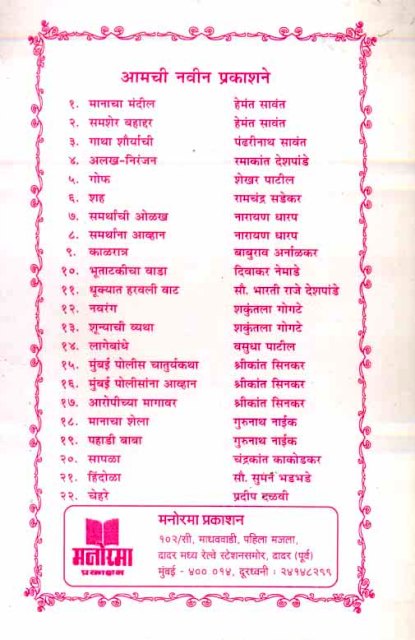 आमची नवीन प्रकाशने
१. मानाचा मंदील हेमंत सावंत
२. समशेर बहाद्दर हेमंत सावंत
३. गाथा शौर्याची पंढरीनाथ सावंत
४. अलख-निरंजन रमाकांत देशपांडे
५. गोफ शेखर पाटील
६. शह रामचंद्र सडेकर
७. समर्थांची ओळख नारायण धारप
८. समर्थांना आव्हान नारायण धारप
९. काळरात्र बाबुराव अर्नाळकर
१०. भूताटकीचा वाडा दिवाकर नेमाडे
११. धूक्यात हरवली वाट सौ. भारती राजे देशपांडे
१२. नवरंग शकुंतला गोगटे
१३. शून्याची व्यथा शकुंतला गोगटे
१४. लागेबांधे वसुधा पाटील
१५. मुंबई पोलीस चातुर्यकथा श्रीकांत सिनकर
१६. मुंबई पोलीसांना आव्हान श्रीकांत सिनकर
१७. आरोपीच्या मागावर श्रीकांत सिनकर
१८. मानाचा शेला गुरुनाथ नाईक
१९. पहाडी बाबा गुरुनाथ नाईक
२०. सापळा चंद्रकांत काकोडकर
२१. हिंदोळा सौ. भडभडे
२२. चेहरे प्रदीप दळवी
मनोरमा प्रकाशन
१०२/सी, माधववाडी, पहिला मजला,
दादर मध्य रेल्वे स्टेशनसमोर, दादर (पूर्व)
मुंबई - ४०० ०१४, दूरध्वनी : २४१४८२९९
मनोरमा
प्रकाशन